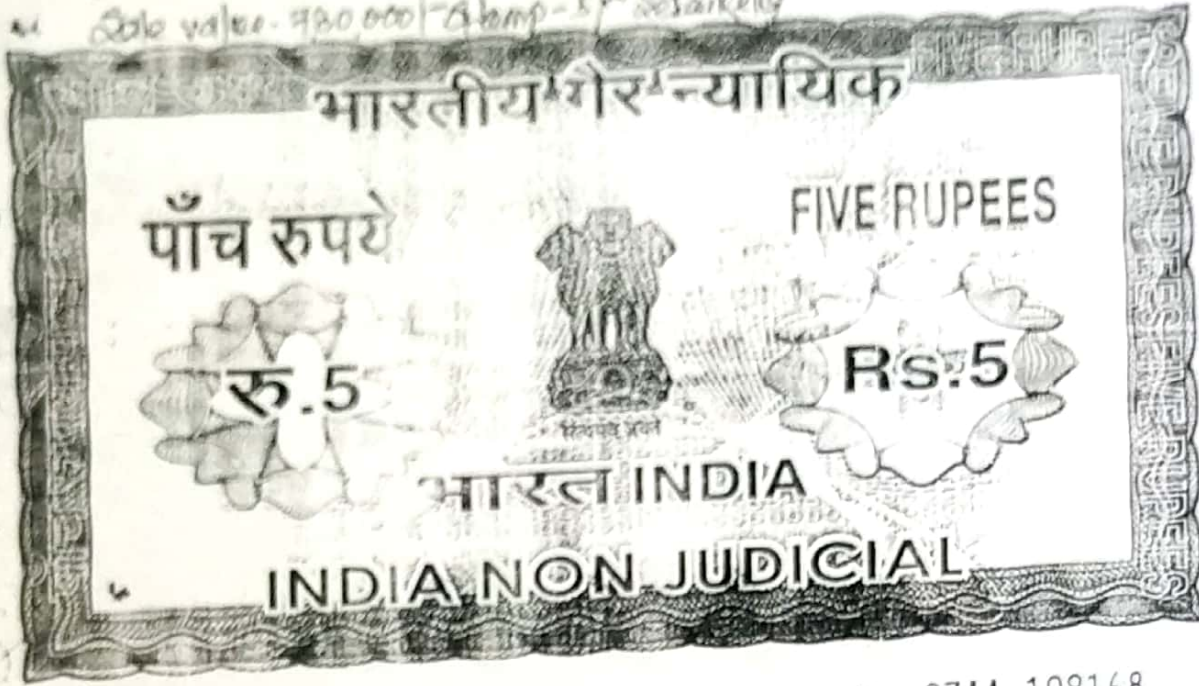 Sale value - 780,000/- Stamp - 5/-
भारतीय गैर न्यायिक
पाँच रुपये
FIVE RUPEES
रु.5
Rs.5
सत्यमेव जयते
भारत INDIA
INDIA NON JUDICIAL
FIVE RUPEES
FIVE RUPEES FIVE RUPEES
108168